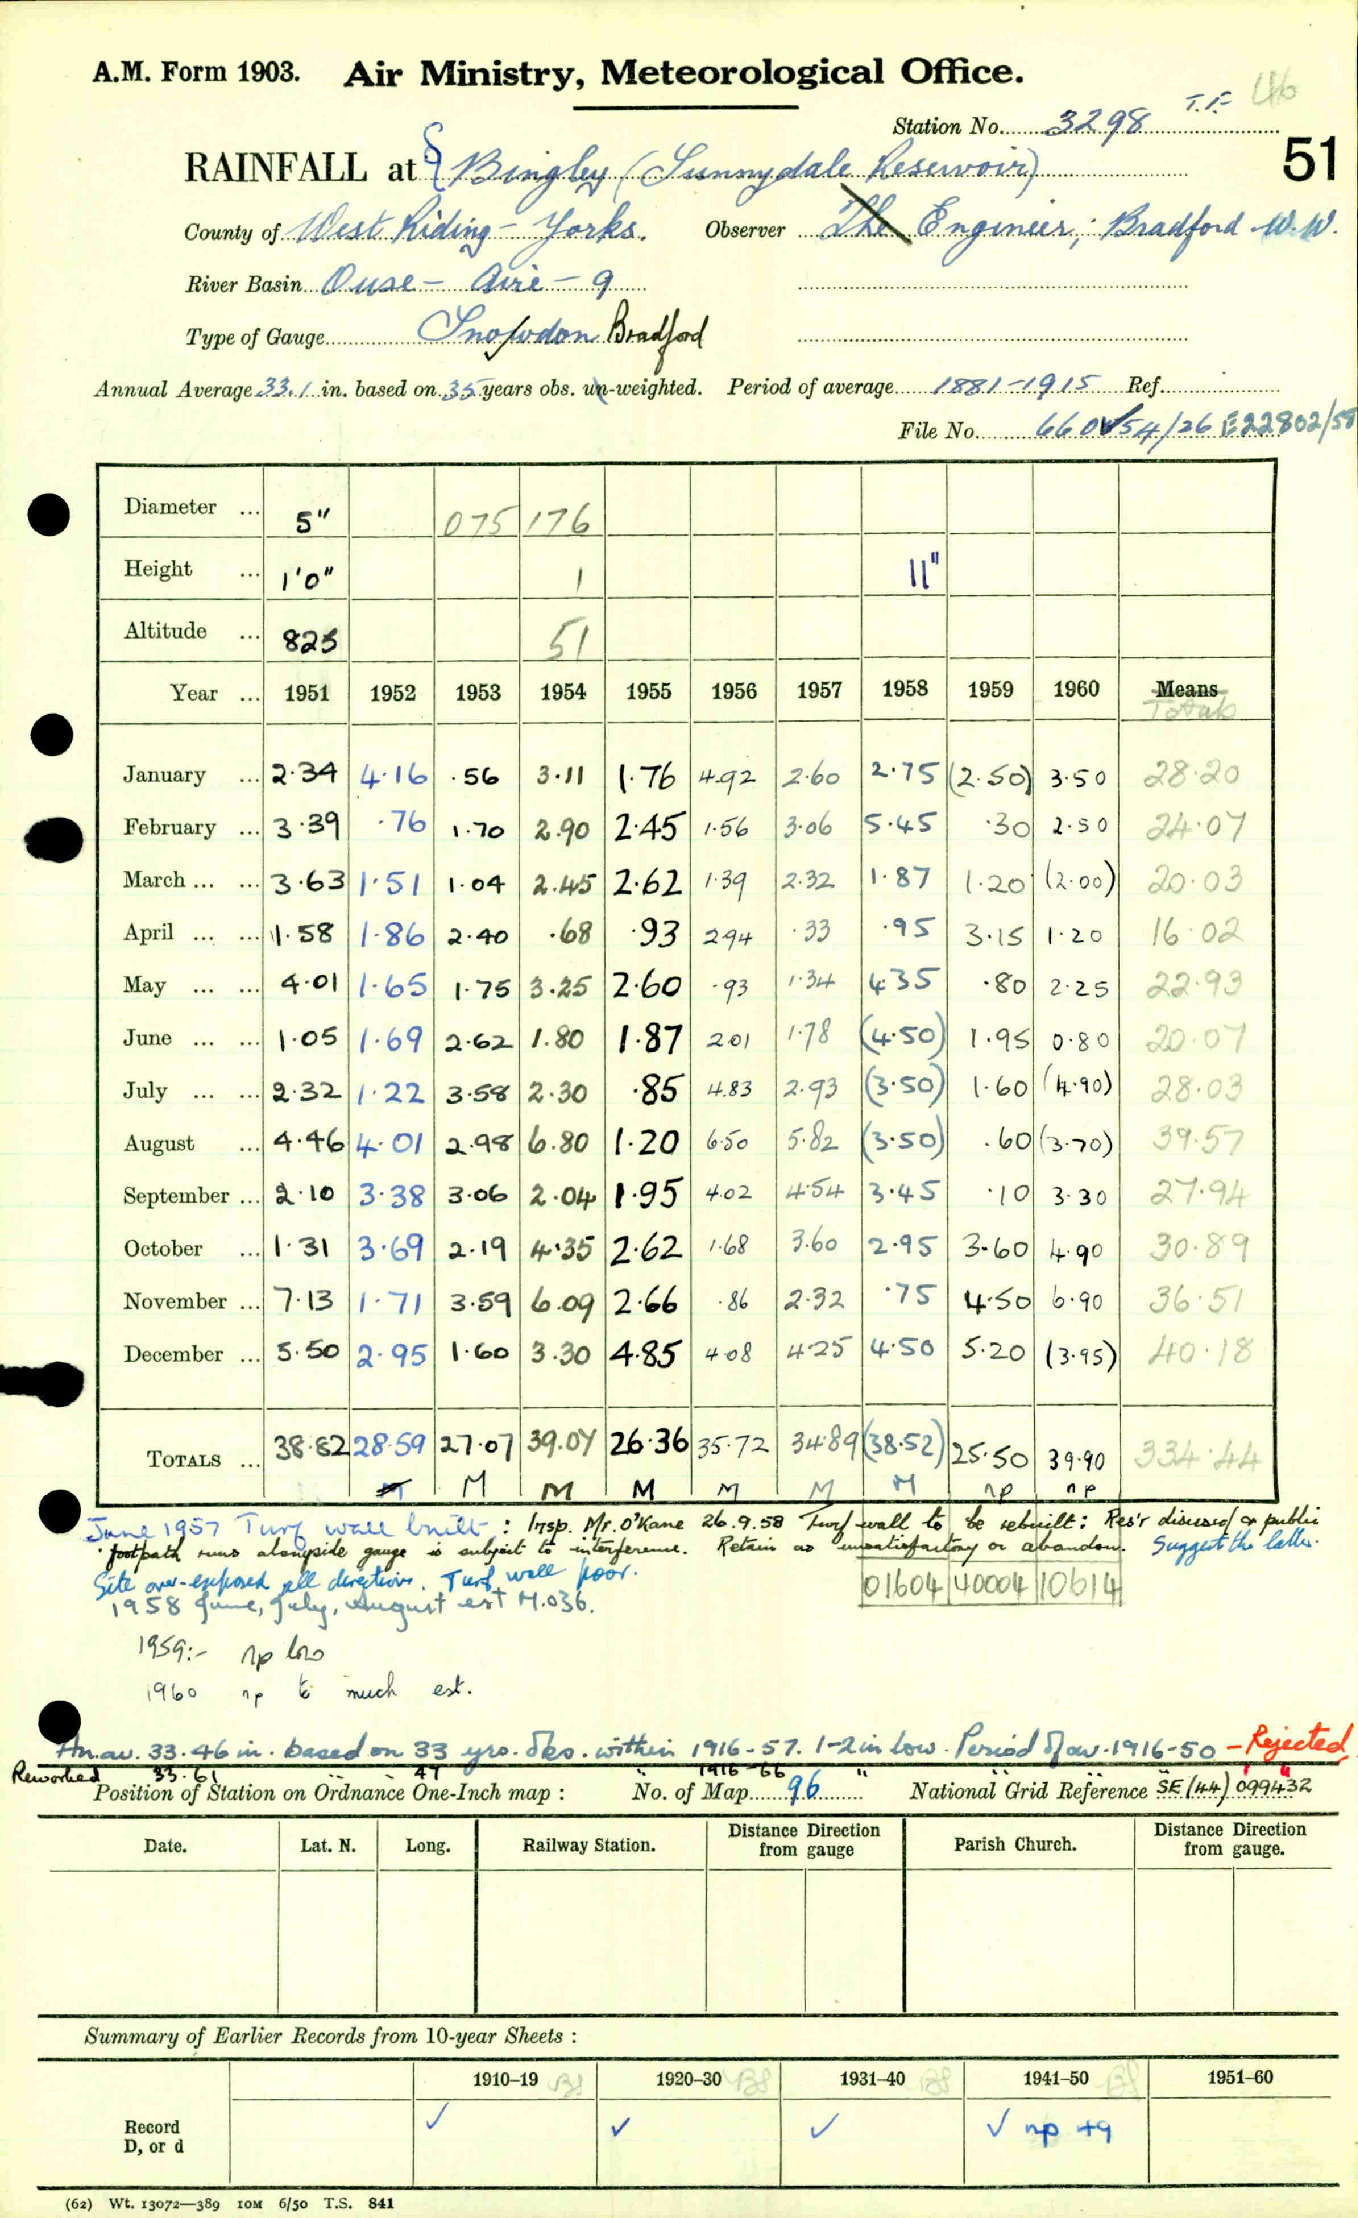 A.M. Form 1903. Air Ministry, Meteorological Office.
T.F. 46
Station No. 3298
51
RAINFALL at Bingley (Sunnydale Reservoir)
County of West Riding - Yorks. Observer The Engineer, Bradford W.W.
River Basin Ouse - Aire - 9
Type of Gauge Snowdon Bradford
Annual Average 33.1 in. based on 35 years obs. un-weighted. Period of average 1881-1915 Ref.
File No. 660454/26 E22802/58
Diameter ... 5" 075 176
Height ... 1'0" 1 11"
Altitude ... 825 51
Year ... 1951 1952 1953 1954 1955 1956 1957 1958 1959 1960 Means
Totals
January ... 2.34 4.16 .56 3.11 1.76 4.92 2.60 2.75 (2.50) 3.50 28.20
February ... 3.39 .76 1.70 2.90 2.45 1.56 3.06 5.45 .30 2.50 24.07
March ... ... 3.63 1.51 1.04 2.45 2.62 1.39 2.32 1.87 1.20 (2.00) 20.03
April ... ... 1.58 1.86 2.40 .68 .93 2.94 .33 .95 3.15 1.20 16.02
May ... ... 4.01 1.65 1.75 3.25 2.60 .93 1.34 4.35 .80 2.25 22.93
June ... ... 1.05 1.69 2.62 1.80 1.87 2.01 1.78 (4.50) 1.95 0.80 20.07
July ... ... 2.32 1.22 3.58 2.30 .85 4.83 2.93 (3.50) 1.60 (4.90) 28.03
August ... 4.46 4.01 2.98 6.80 1.20 6.50 5.82 (3.50) .60 (3.70) 39.57
September ... 2.10 3.38 3.06 2.04 1.95 4.02 4.54 3.45 .10 3.30 27.94
October ... 1.31 3.69 2.19 4.35 2.62 1.68 3.60 2.95 3.60 4.90 30.89
November ... 7.13 1.71 3.59 6.09 2.66 .86 2.32 .75 4.50 6.90 36.51
December ... 5.50 2.95 1.60 3.30 4.85 4.08 4.25 4.50 5.20 (3.95) 40.18
TOTALS ... 38.82 28.59 27.07 39.07 26.36 35.72 34.89 (38.52) 25.50 39.90 334.44
M M M M M M np np
June 1957 Turf wall built : Insp. Mr. O'Kane 26.9.58 Turf wall to be rebuilt: Res'r disused & public
footpath runs alongside gauge is subject to interference. Retain as unsatisfactory or abandon. Suggest the latter.
Site over-exposed all directions. Turf wall poor.
01604 40004 10614
1958 June, July, August est M.036.
1959:- np low
1960 np to much est.
An. av. 33.46 in. based on 33 yrs. obs. within 1916-57. 1-2 in low. Period of av. 1916-50 - Rejected
Reworked 33.61 " 47 " 1916-66 " " "
Position of Station on Ordnance One-Inch map : No. of Map 96 National Grid Reference SE (44) 099432
Date. Lat. N. Long. Railway Station. Distance Direction from gauge Parish Church. Distance Direction from gauge.
Summary of Earlier Records from 10-year Sheets :
1910-19 1920-30 1931-40 1941-50 1951-60
Record
D, or d ✓ ✓ ✓ ✓ np 49
(62) Wt. 13072-389 10M 6/50 T.S. 841